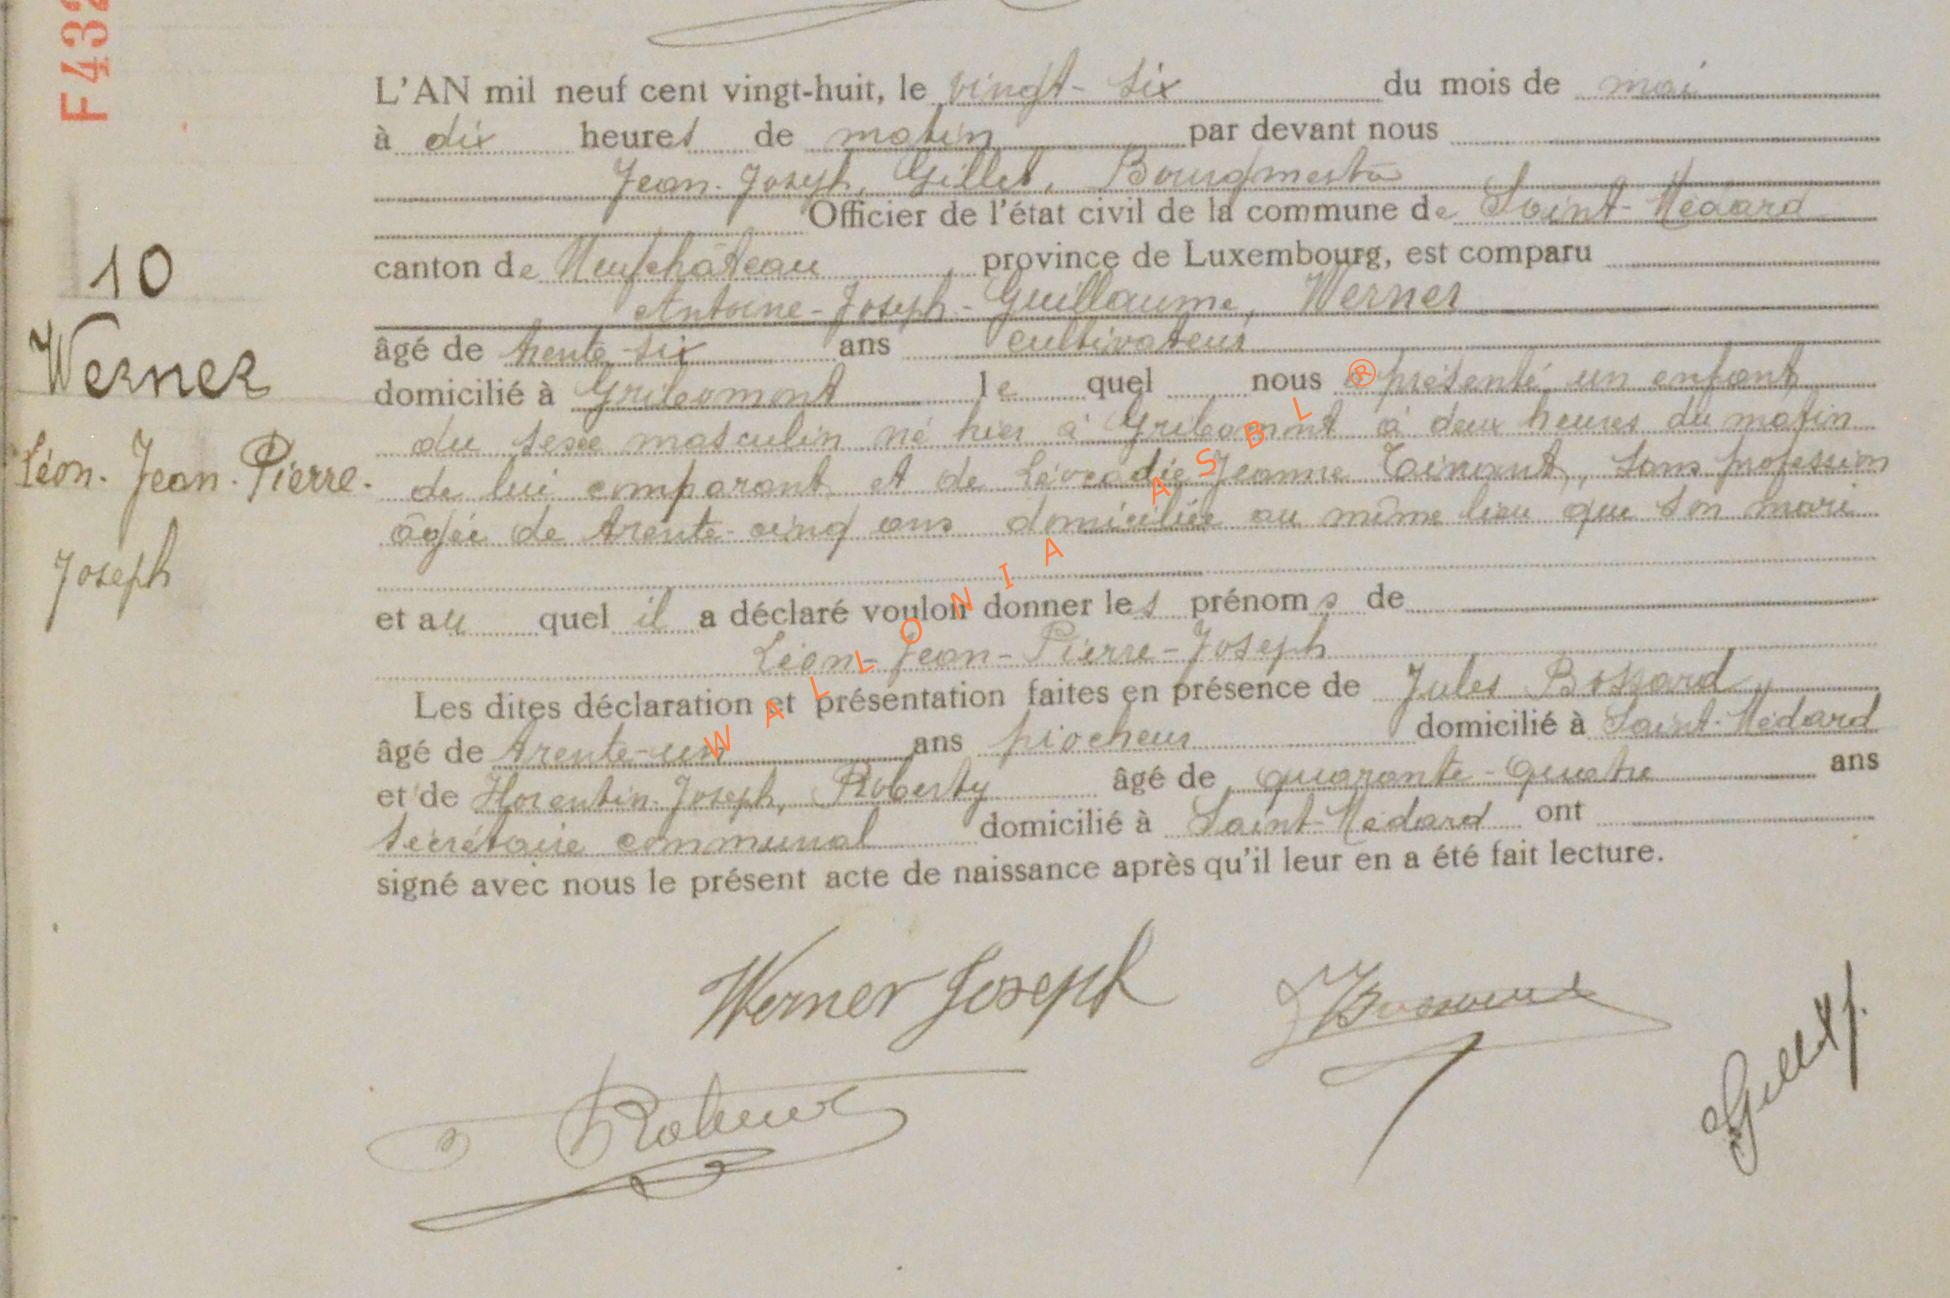 F432
L'AN mil neuf cent vingt-huit, le vingt-six du mois de mai
à dix heures de matin par devant nous
Jean-Joseph, Gillet, Bourgmestre
Officier de l'état civil de la commune de Saint-Médard
canton de Neufchâteau, province de Luxembourg, est comparu
Antoine-Joseph-Guillaume, Werner
âgé de trente-six ans cultivateur
domicilié à Gribomont lequel nous a présenté un enfant
du sexe masculin né hier à Gribomont à deux heures du matin
de lui comparant et de Léocadie Jeanne Tainant, sans profession
âgée de trente-cinq ans domiciliée au même lieu que son mari
et au quel il a déclaré vouloir donner les prénoms de
Léon-Jean-Pierre-Joseph
Les dites déclaration et présentation faites en présence de Jules Bossard
âgé de trente-un ans piocheur domicilié à Saint-Médard
et de Florentin-Joseph, Roberty âgé de quarante-quatre ans
secrétaire communal domicilié à Saint-Médard ont
signé avec nous le présent acte de naissance après qu'il leur en a été fait lecture.
10
Werner
Léon-Jean-Pierre-
Joseph
Werner Joseph
Gillet J.
WALLONIA ASBL ®